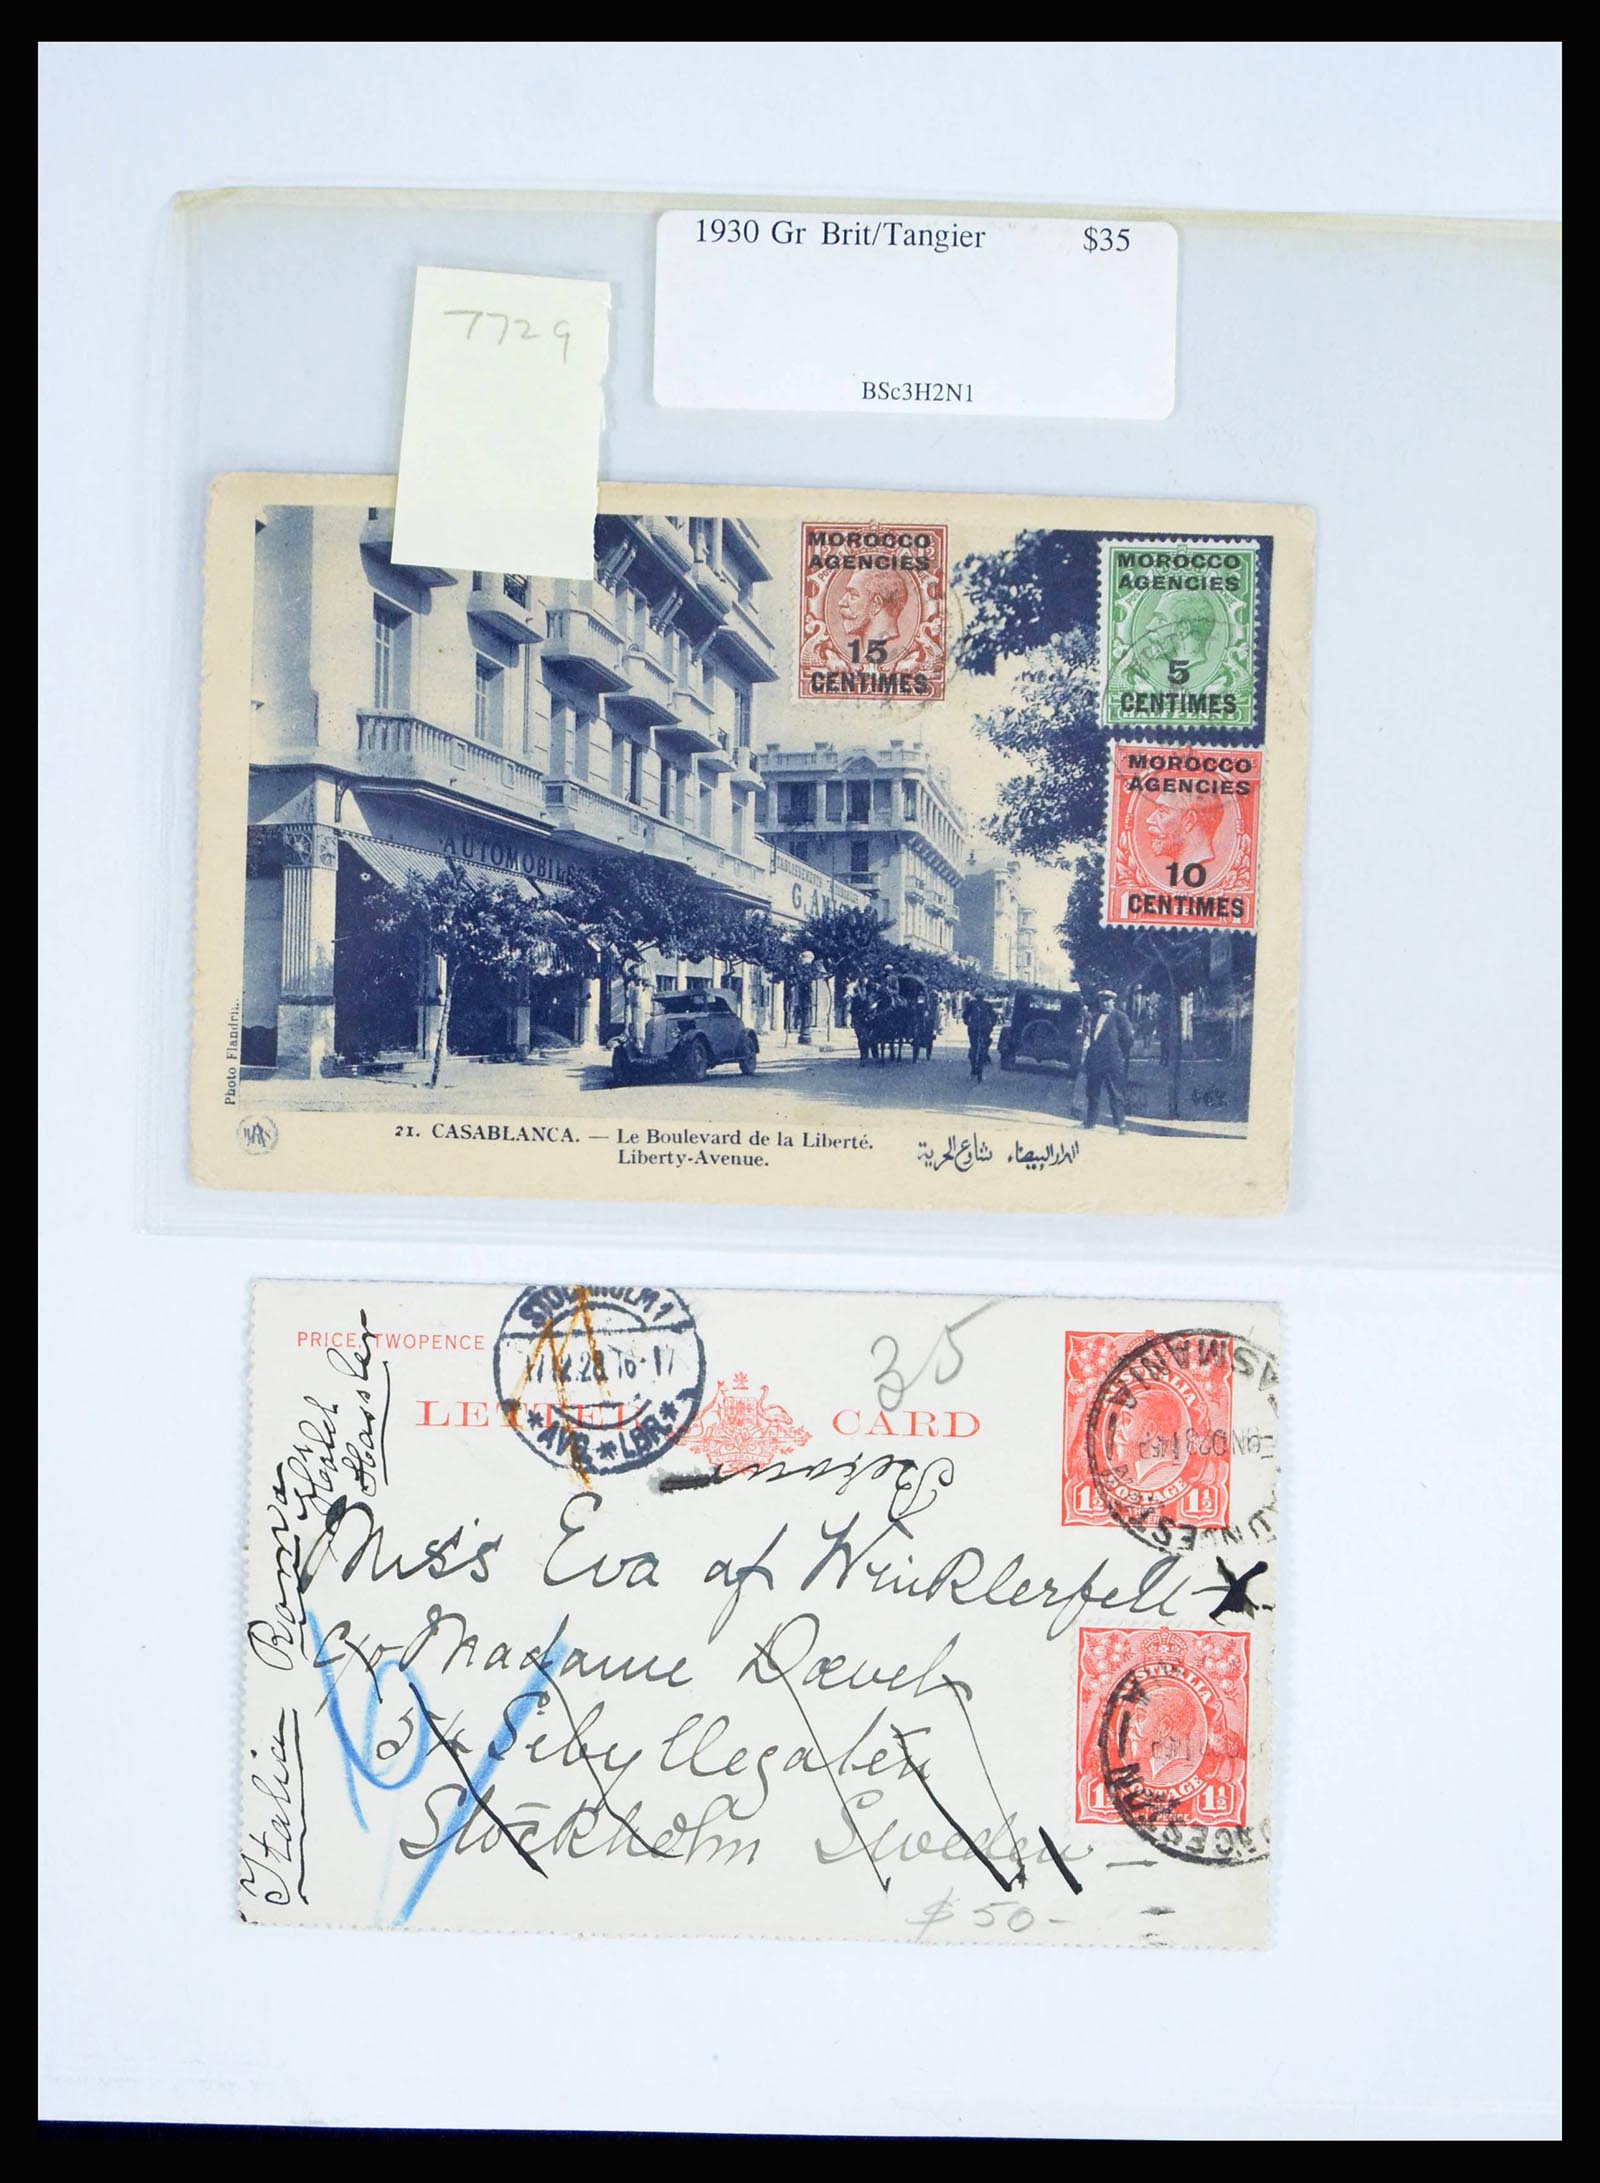 1930 Gr Brit/Tangier $35
BSc3H2N1
7729
MOROCCO
AGENCIES
15
CENTIMES
MOROCCO
AGENCIES
5
CENTIMES
MOROCCO
AGENCIES
10
CENTIMES
AUTOMOBILES
ETABLISSEMENTS
Photo Flandrin.
21. CASABLANCA. — Le Boulevard de la Liberté.
Liberty-Avenue.
الدار البيضاء شارع الحرية
PRICE: TWOPENCE
LETTER CARD
35
STOCKHOLM 1
*AVG*LBR*
TASMANIA
POSTAGE
1½ 1½
Miss Eva af Winklerfelt
c/o Madame
54 Sibyllegaten
Stockholm Sweden
AUSTRALIA
POSTAGE
1½ 1½
Italia Roma
Hotel
Hassler
$50-